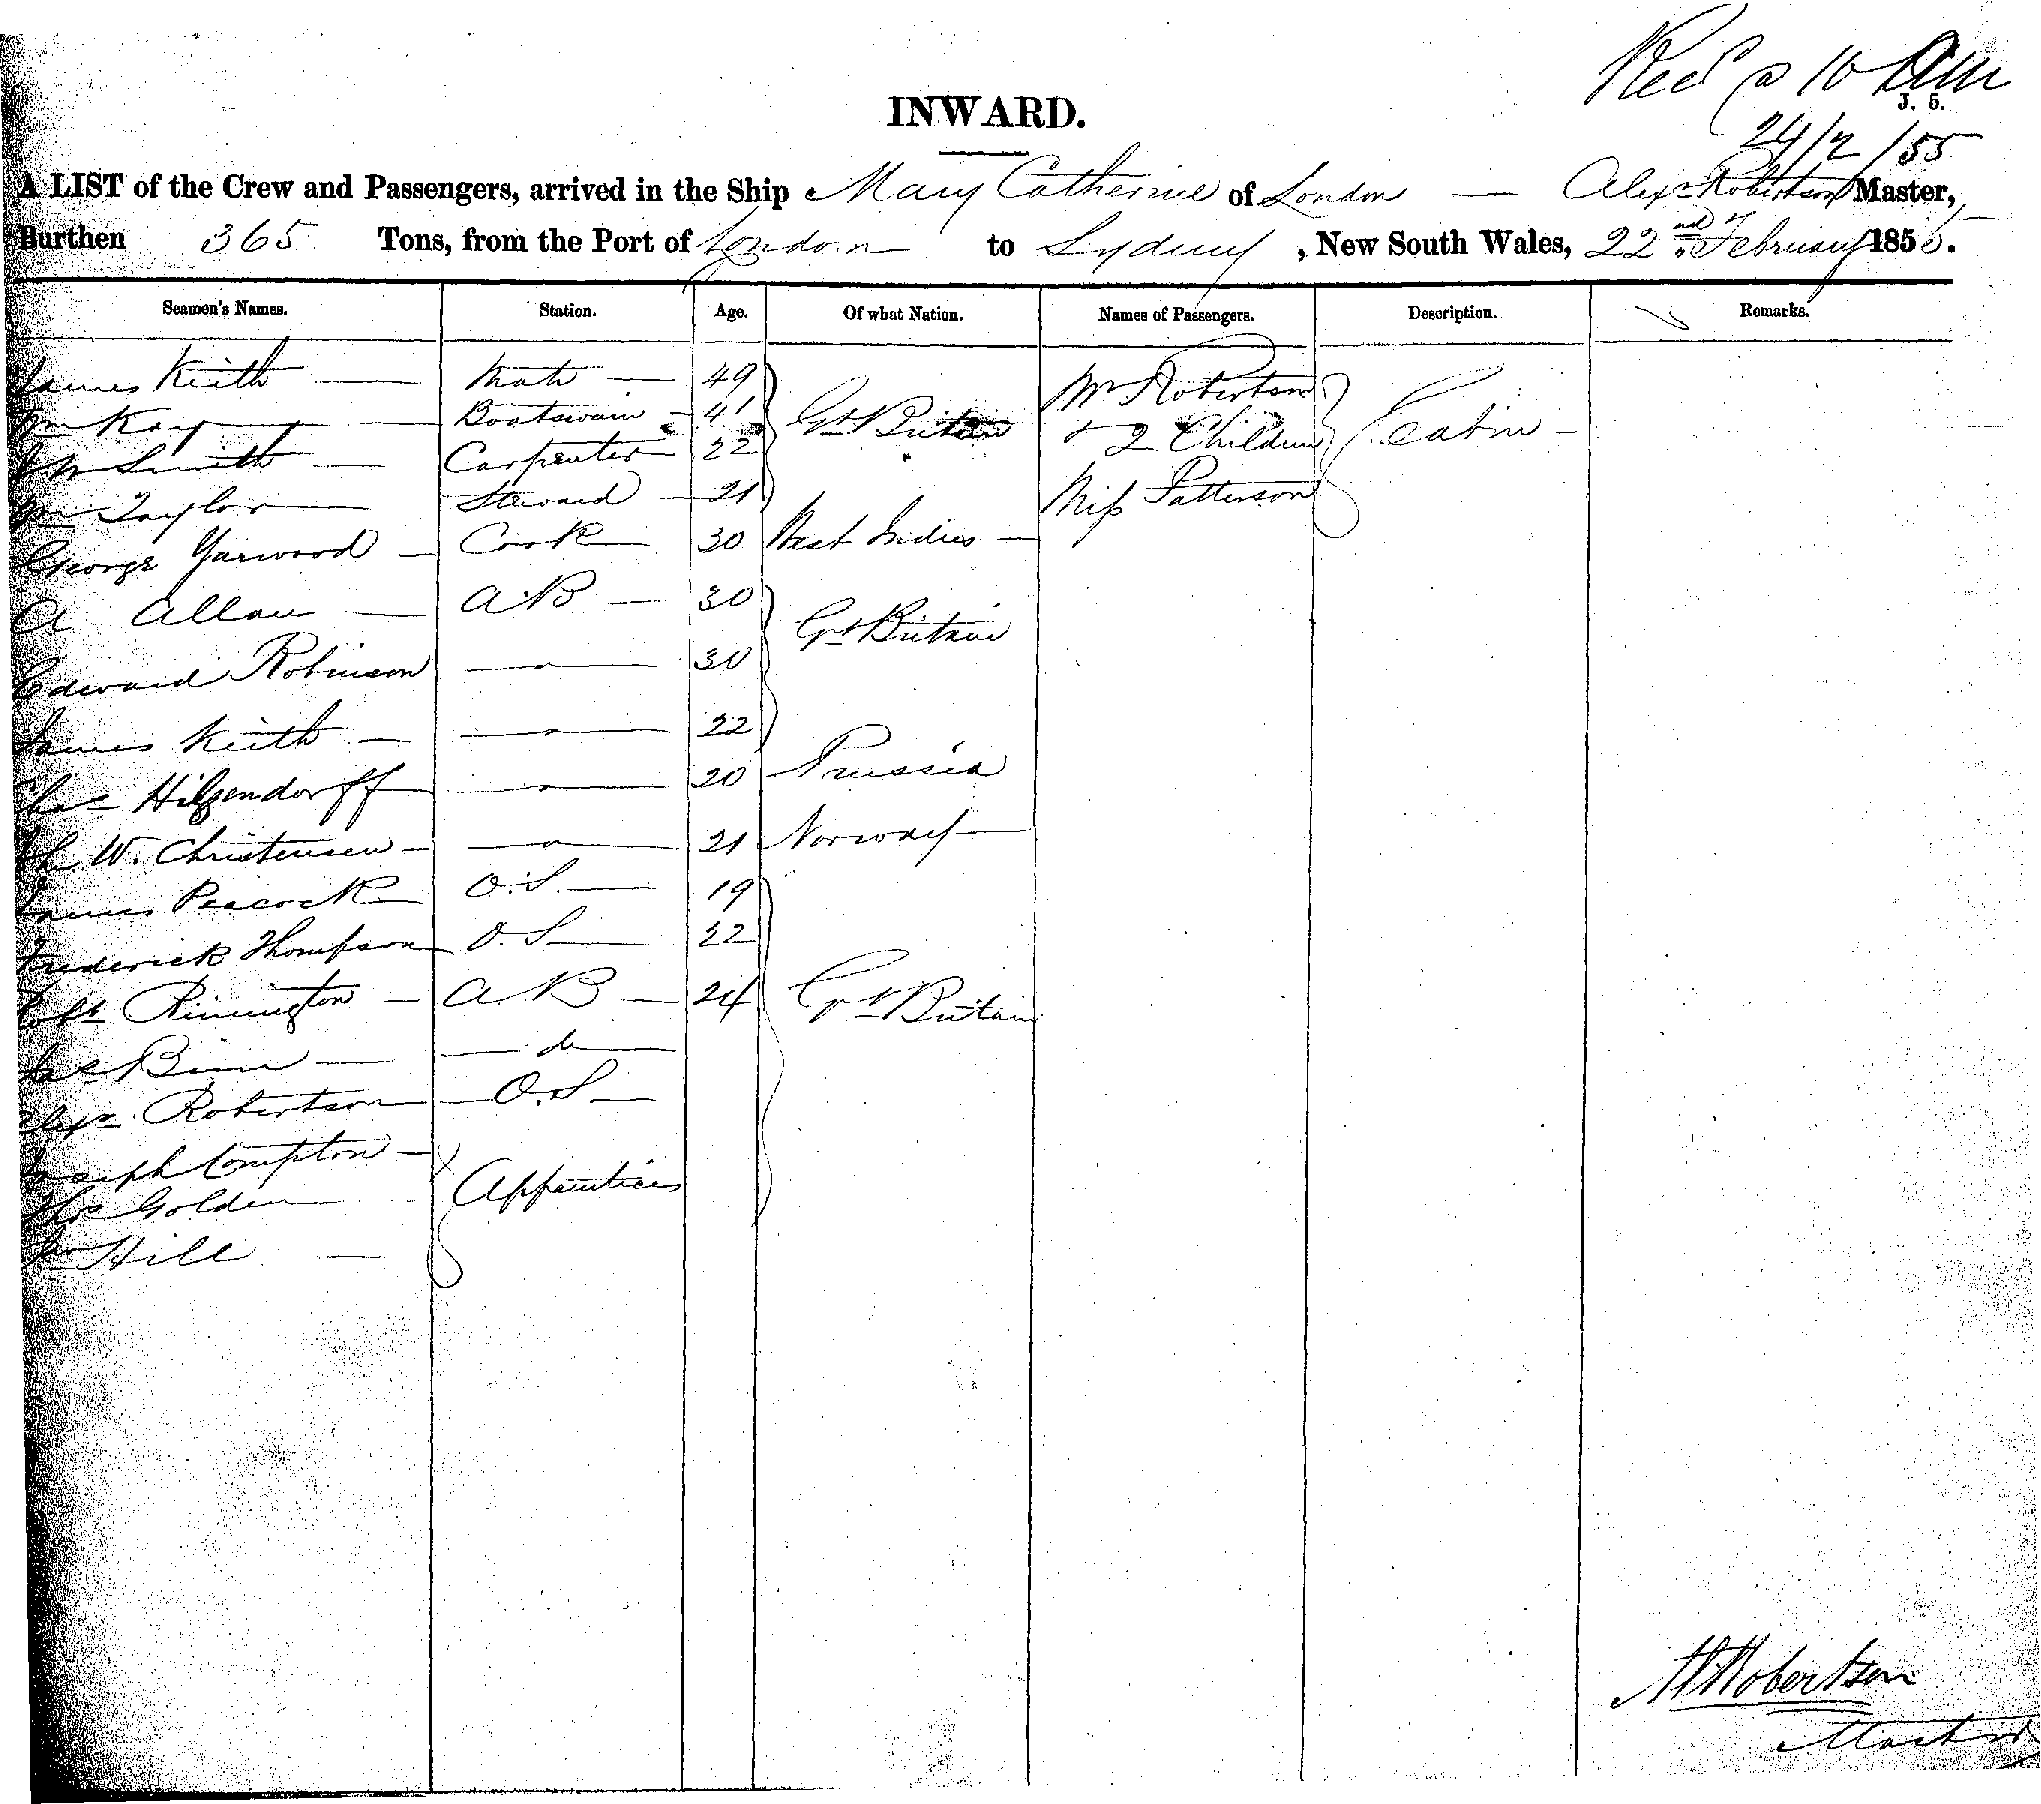 Recd @ 10 AM
J. 5.
24/2/55
INWARD.
A LIST of the Crew and Passengers, arrived in the Ship Mary Catherine of London — Alexr Robertson Master,
Burthen 365 Tons, from the Port of London to Sydney, New South Wales, 22nd of February 1855.
Seamen's Names. Station. Age. Of what Nation. Names of Passengers. Description. Remarks.
James Keith — Mate — 49
Wm Kay — Boatswain — 41 Gt Britain Mrs Robertson
Smith — Carpenter — 22 & 2 Children Cabin —
Wm Taylor — Steward — 21 Miss Patterson
George Yarwood — Cook — 30 West Indies —
A Allan — A.B — 30
Edward Robinson — " — 30 Gt Britain
James Keith — — " — 22
Chas Hilgendorff — " — 20 Prussia
W. Christensen — — " — 21 Norway —
James Peacock — O.S. — 19
Frederick Thompson — O.S — 22
Robt Rimington — A B — 24 Gt Britain
Jas Binn — — do —
Alexr Robertson — O.S —
Joseph Compton —
Thos Golden Apprentices
Hill —
A Robertson
Master